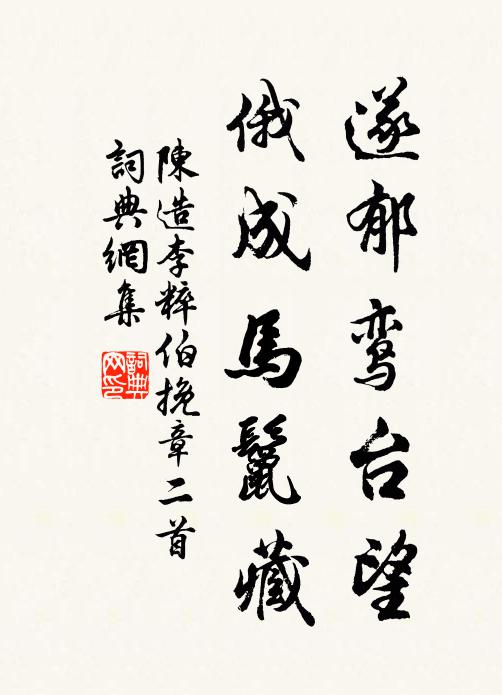 遂郁鸾台望
俄成馬鬣藏
陳造李粹伯挽章二首
詞典網集
詞典网印